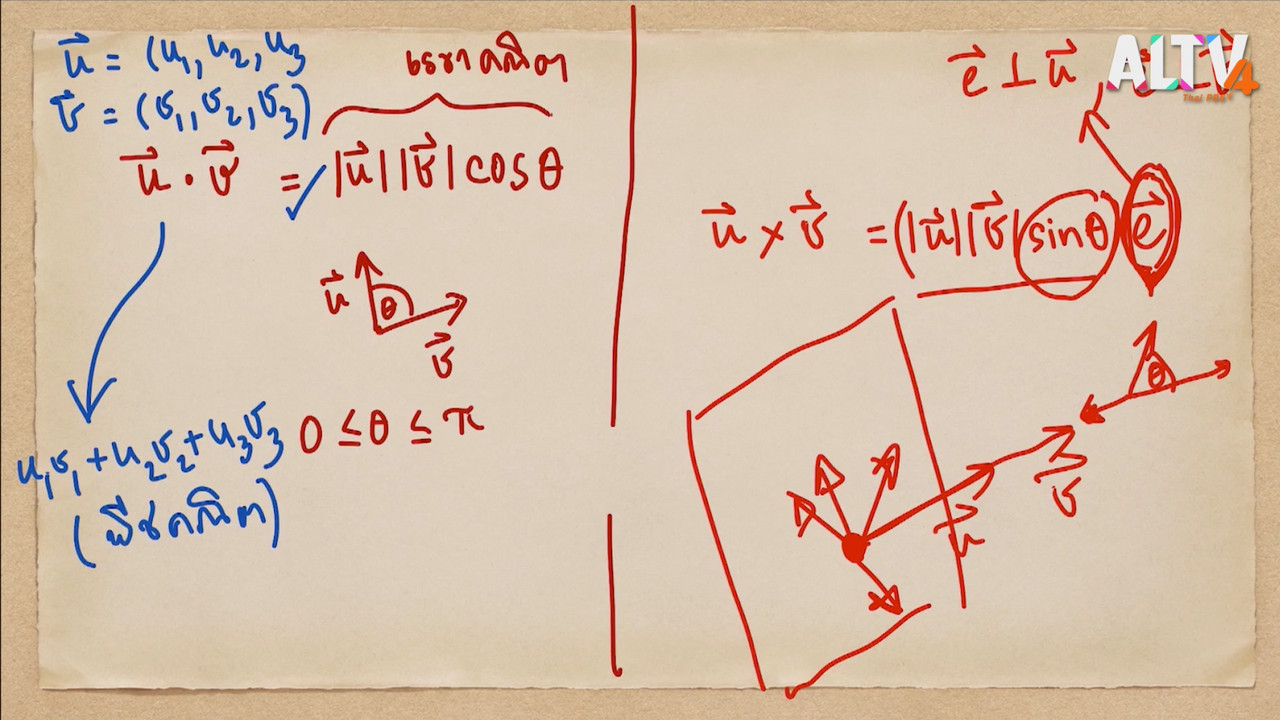 u⃗ = (u₁, u₂, u₃
v⃗ = (v₁, v₂, v₃)
เรขาคณิต
u⃗ · v⃗ = |u⃗||v⃗| cosθ
u⃗
θ
v⃗
u₁v₁ + u₂v₂ + u₃v₃
(พีชคณิต)
0 ≤ θ ≤ π
e⃗ ⊥ u⃗
ALTV4
Thai PBS
u⃗ × v⃗ = (|u⃗||v⃗| sinθ) e⃗
θ
v⃗
u⃗